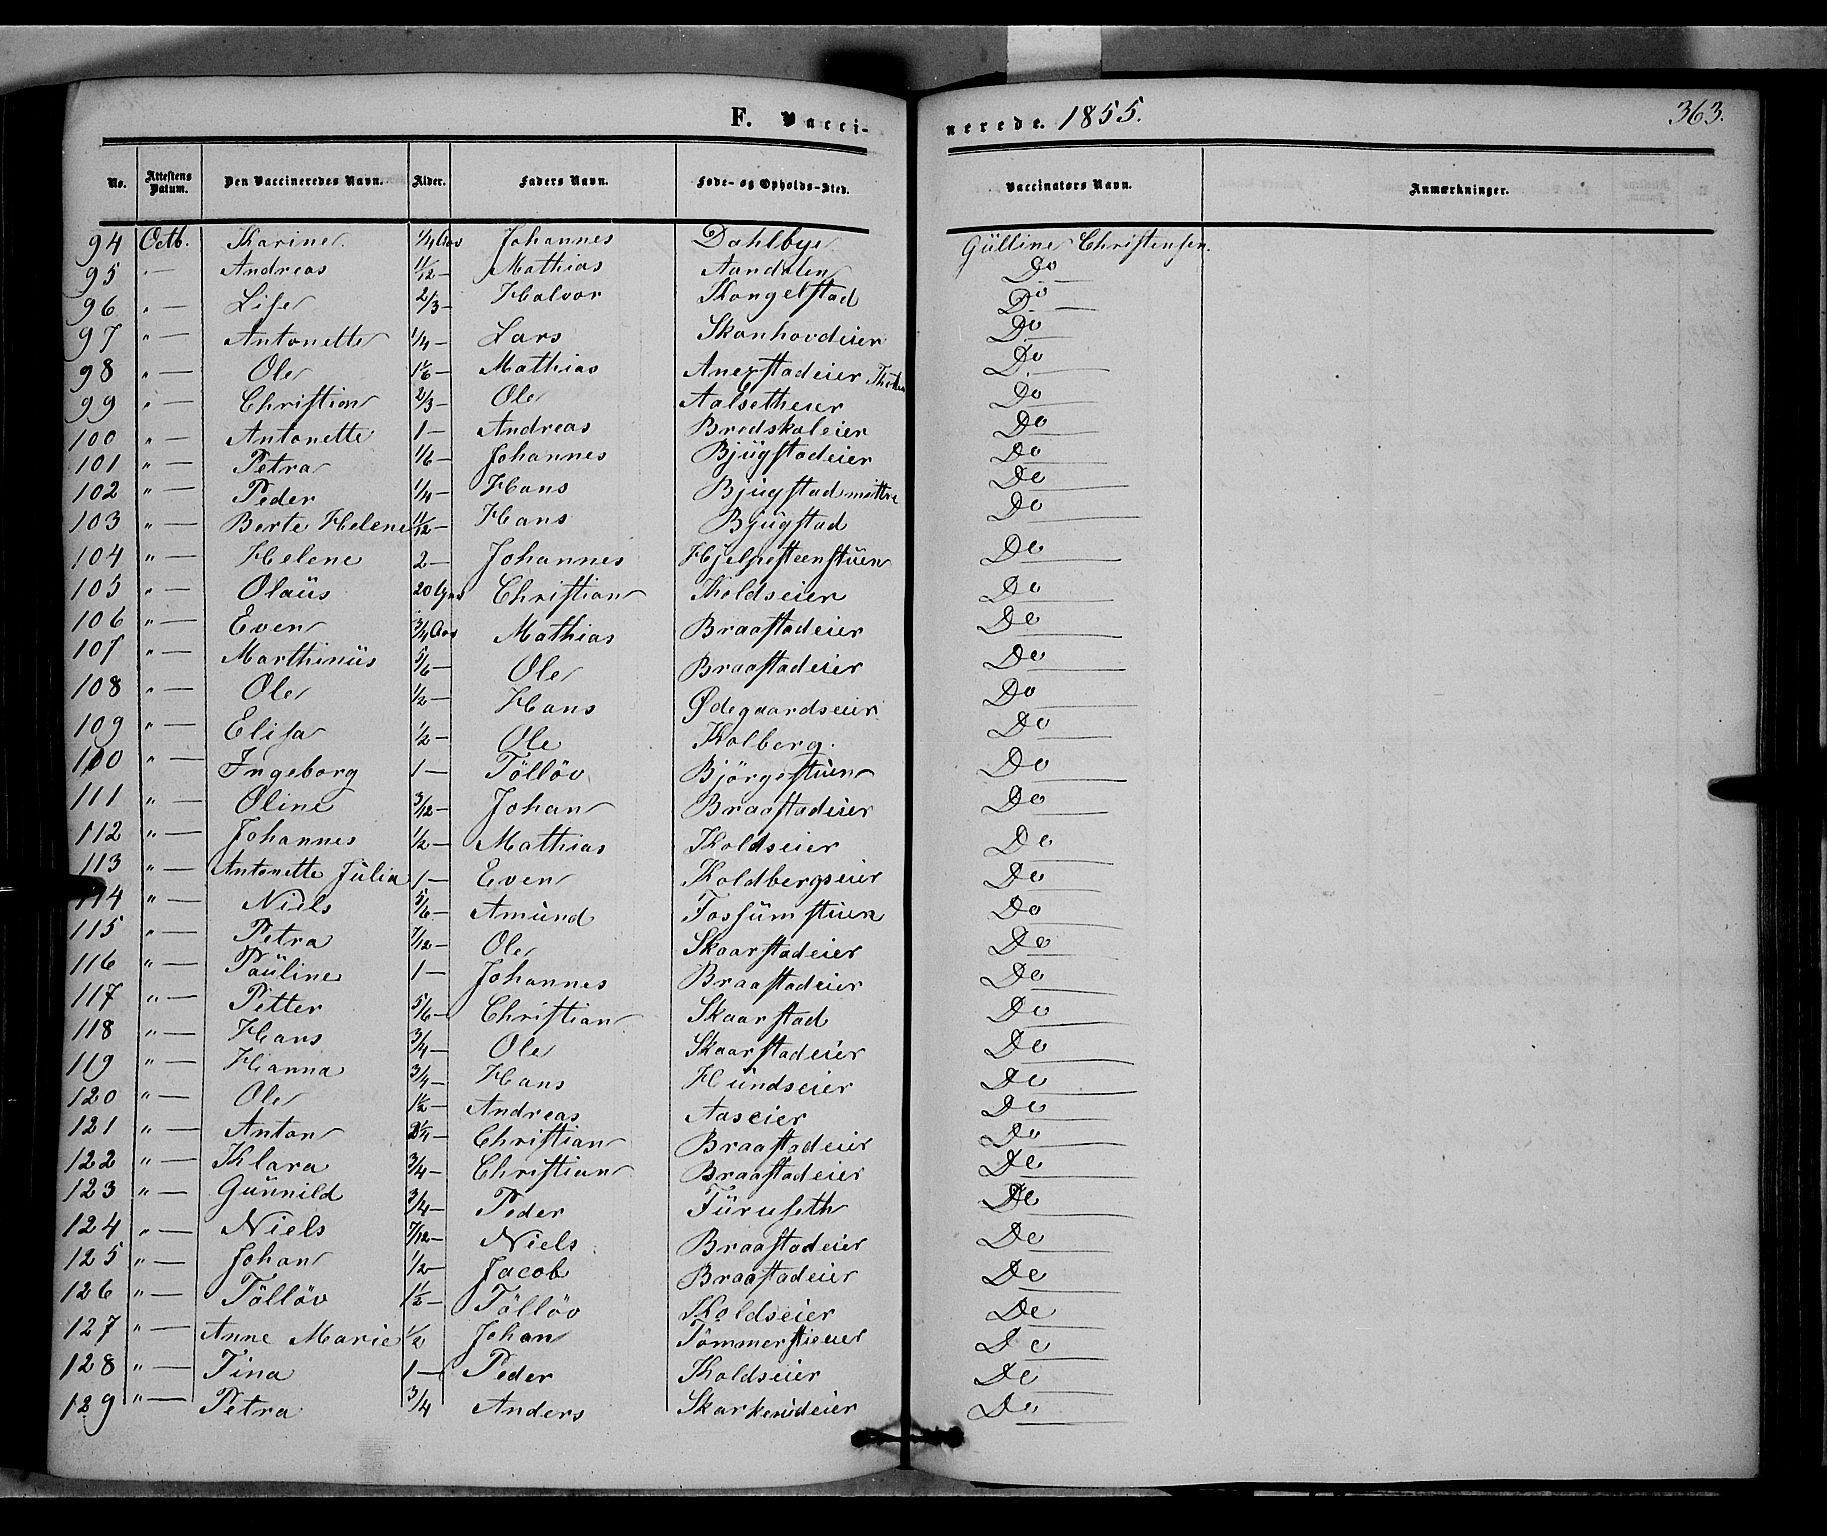 F. Vacci-
nerede. 1855.
363.
No. Attestens Datum. Den Vaccineredes Navn. Alder. Faders Navn. Føde- og Opholds-Sted. Vaccinators Navn. Anmærkninger.
94 Octb. Karine 1/4 Aar Johannes Dahlbye Gülline Christensen.
95 " — Andreas 11/12 — Mathias Aandalen Do —
96 " — Lise 2/3 — Halvor Kongelstad Do —
97 " — Antonette 1/4 — Lars Skonhovdeier Do —
98 " — Ole 1/6 — Mathias Anepstadeier Do —
99 " — Christian 2/3 — Ole Aalsetheier Do —
100 " — Antonette 1 — Andreas Bredskaleier Do —
101 " — Petra 1/6 — Johannes Bjügstadeier Do —
102 " — Peder 1/4 — Hans Bjügstad mittre Do —
103 " — Berte Helene 11/12 — Hans Bjügstad Do —
104 " — Helene 2 — Johannes Hjelpesteenstüen Do —
105 " — Olaüs 20 Christian Koldseier Do —
106 " — Even 3/4 Aar Mathias Braastadeier Do —
107 " — Marthinüs 5/6 — Ole Braastadeier Do —
108 " — Ole 1/2 — Hans Ødegaardseier Do —
109 " — Elisa 1/2 — Ole Kolberg. Do —
110 " — Ingeborg 1 — Tölløv Bjørgestüen Do —
111 " — Oline 3/12 — Johan Braastadeier Do —
112 " — Johannes 1/2 — Mathias Koldseier Do —
113 " — Antonette Jülia 1 — Even Koldbergseier Do —
114 " — Niels 5/6 — Amünd Fossümstüen Do —
115 " — Petra 7/12 — Ole Skaarstadeier Do —
116 " — Paüline 1 — Johannes Braastadeier Do —
117 " — Petter 5/6 — Christian Skaarstad Do —
118 " — Hans 3/4 — Ole Skaarstadeier Do —
119 " — Hanna 3/4 — Hans Hündseier Do —
120 " — Ole 1 1/2 — Andreas Aaseier Do —
121 " — Anton 2 1/4 — Christian Braastadeier Do —
122 " — Klara 3/4 — Christian Braastadeier Do —
123 " — Günnild 3/4 — Peder Füruseth Do —
124 " — Niels 7/12 — Niels Braastadeier Do —
125 " — Johan 1/2 — Jacob Braastadeier Do —
126 " — Tölløv 1 1/2 — Tölløv Koldseier Do —
127 " — Anne Marie 1/2 Johan Tömmerstieuer Do —
128 " — Tina 1 — Peder Koldseier Do —
129 " — Petra 3/4 Anders Skarkerüdeier Do —